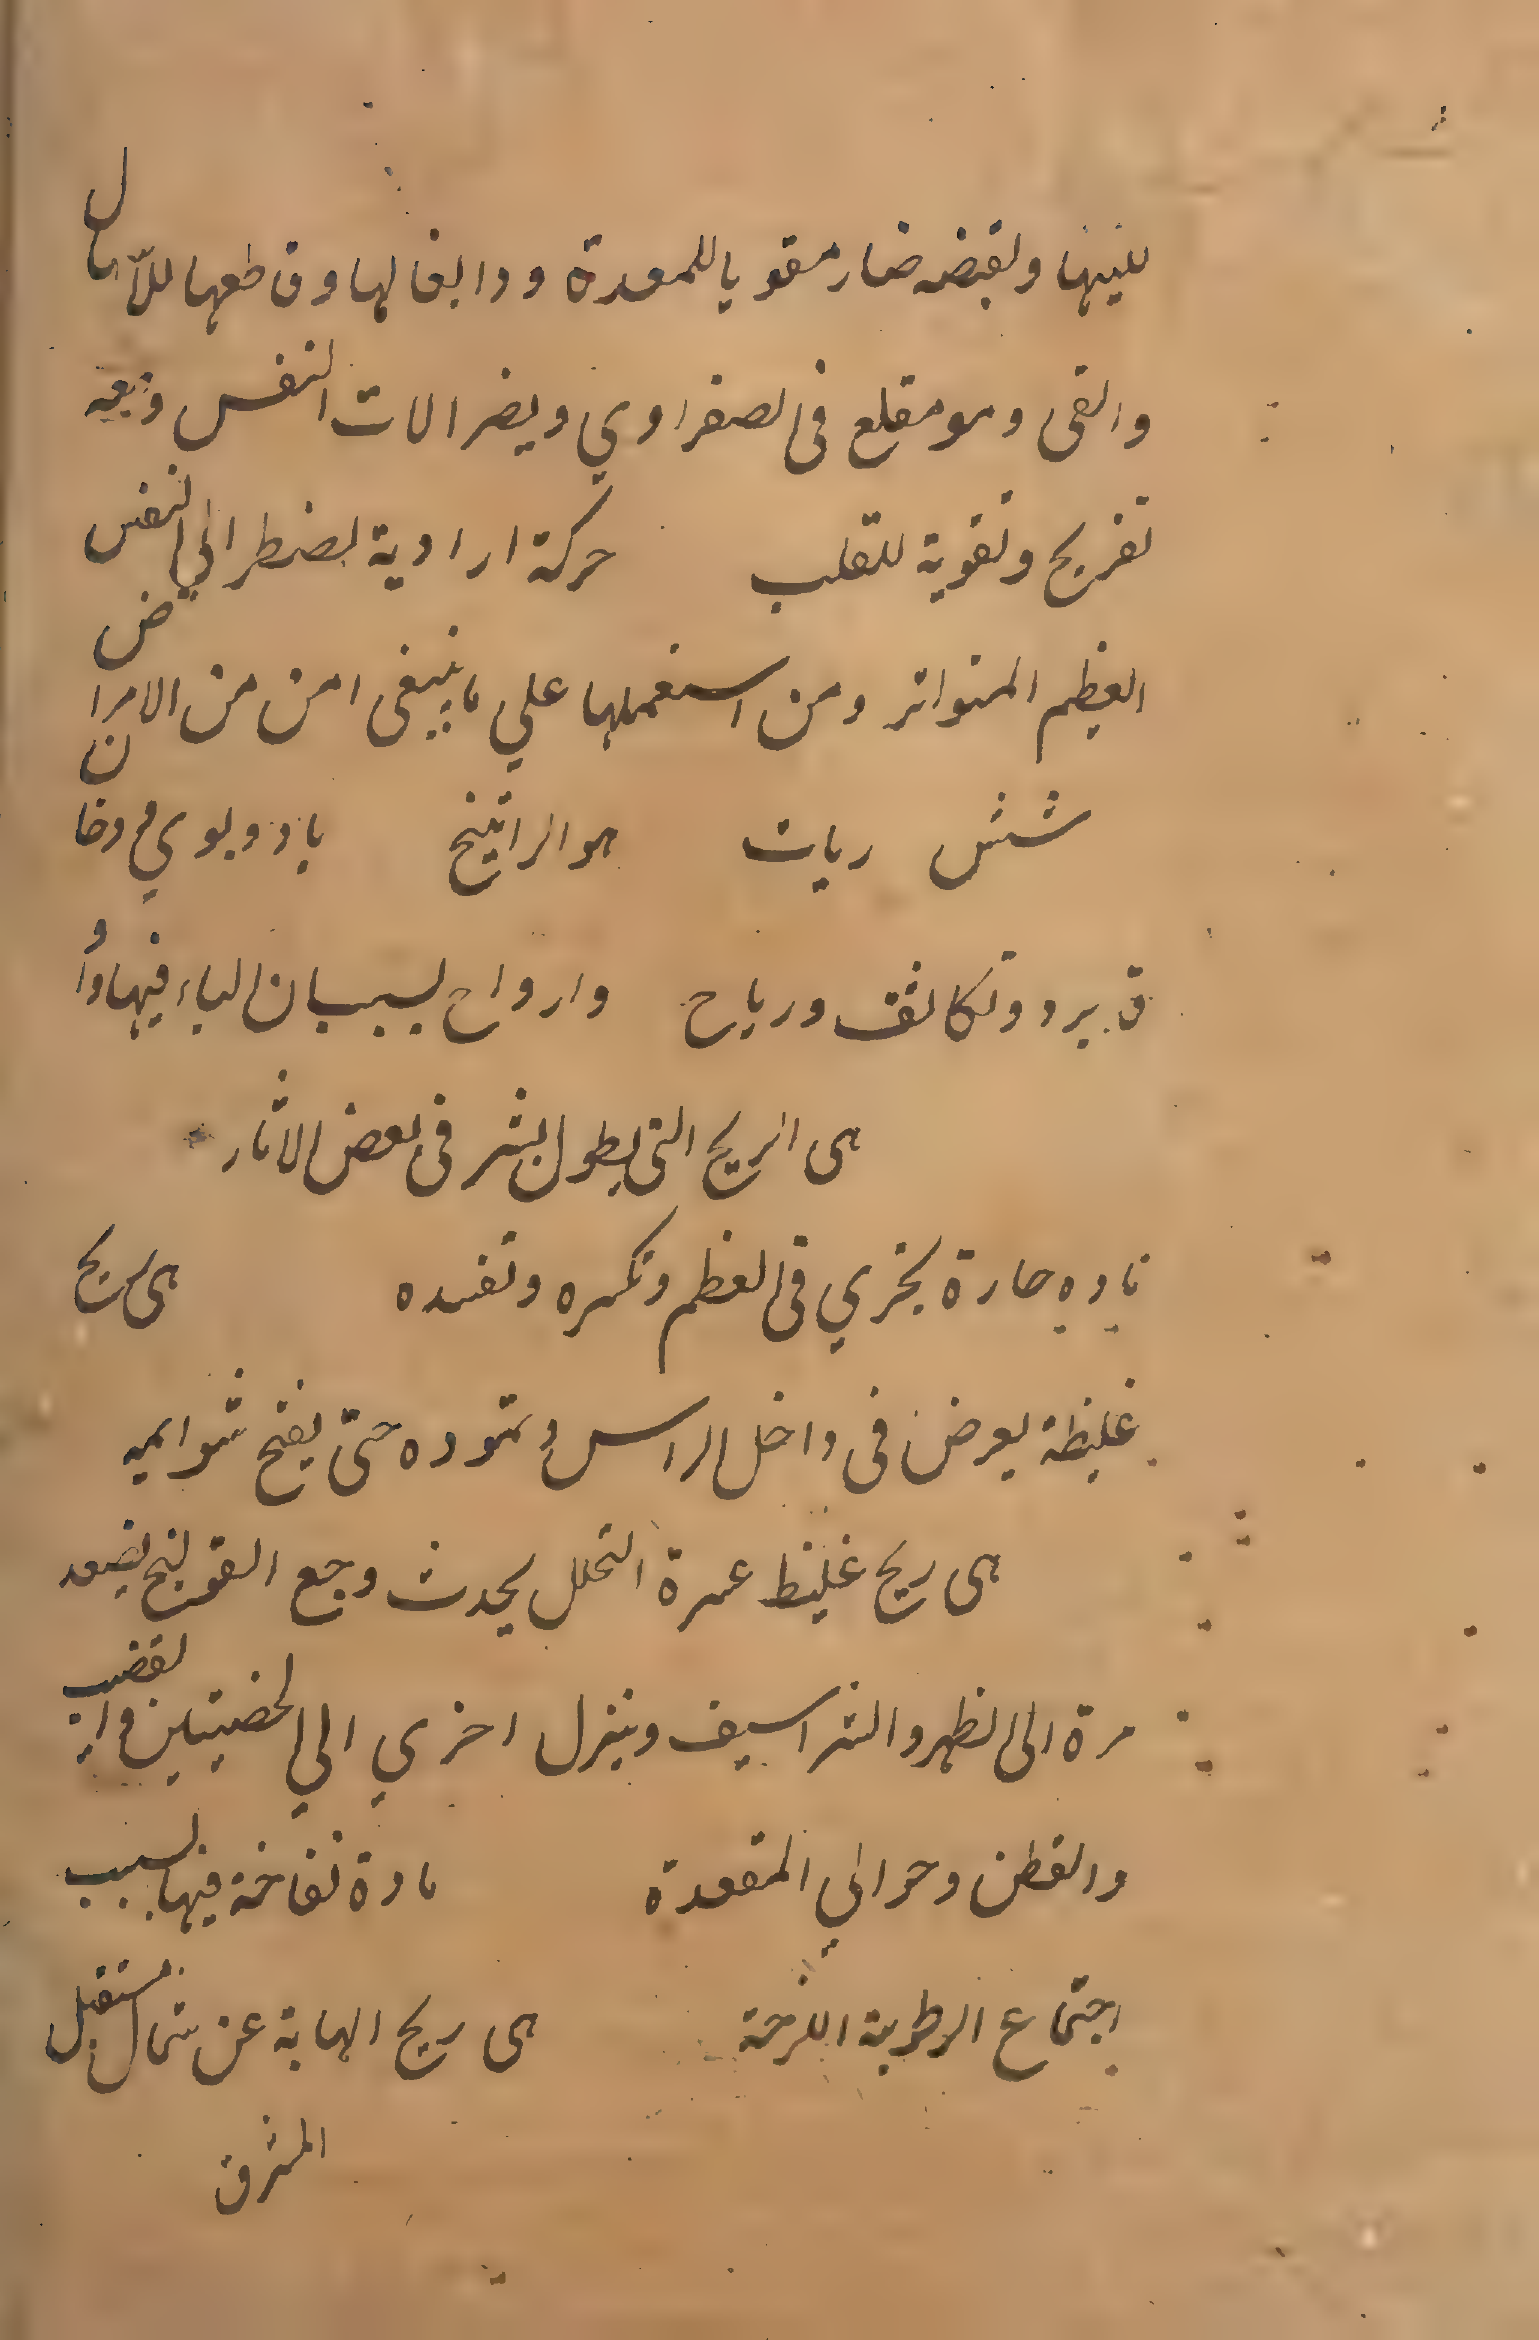 للينها ولقبضه ضار مقويا للمعدة ودابغا لها وقاطعها للاسهال
والقى وهو مقلع فى الصفراوي ويضر الات النفس وفيه
تفريح وتقوية للقلب حركة ارادية يضطر الي النفس
العظيم المتواتر ومن استعملها علي ما ينبغى امن من الامراض
شش ريات هو الراتينج باد وبوي ودخان
قد برد وتكاثف ورياح وارواح لسبب ان الياء فيها واو
هى الريح التى يطول بشر فى بعض الاثار
ماده حارة يجري فى العظم وتكسره وتفسده هى ريح
غليظة يعرض فى داخل الراس وتمدده حتى يفتح شوانيه
هى ريح غليظ عسرة التحلل يحدث وجع القولنج يصعد
مرة الى الظهر والشراسيف وينزل اخري الي الخصيتين والقضيب
والقطن وحوالي المقعدة مادة نفاخة فيها لسبب
اجتماع الرطوبة اللزجة هى ريح الهابة عن شمال مستقبل
المشرق